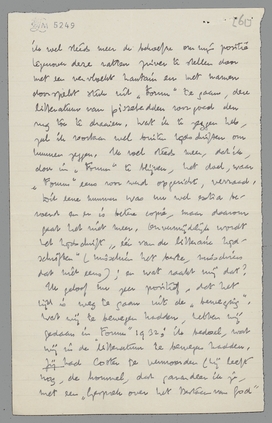 5249
(60)
ik wel steeds meer de behoefte om mijn positie
tegenover deze ratten zuiver te stellen door
met een
"Forum" te gaan, deze
litteratuur van voor goed den
rug toe te draaien. Wat ik te zeggen heb,
zal ik voortaan wel buiten tijdschriften om
kunnen zeggen. Ik voel steeds meer, dat ik,
door in "Forum" te blijven, het doel, waar
"Forum" eens voor werd opgericht, verraad.
een nummer was nu wel
en er is betere copie, maar daarom
gaat het niet meer. Onvermijdelijk wordt
het tijdschrift "één van de litteraire tijd-
schriften" (misschien het beste, misschien
dat niet eens); en wat raakt mij dat?
Ik geloof nu zeer positief, dat het
tijd is weg te gaan uit de "beweging".
Wat wij te bewegen hadden, hebben wij
gedaan in "Forum" 1932; ik bedoel, wat
wij in de "litteratuur te bewegen hadden.
had Coster te vermoorden (hij leeft
nog, de hommel, dat
met een "Gesprek over het Bestaan van God"